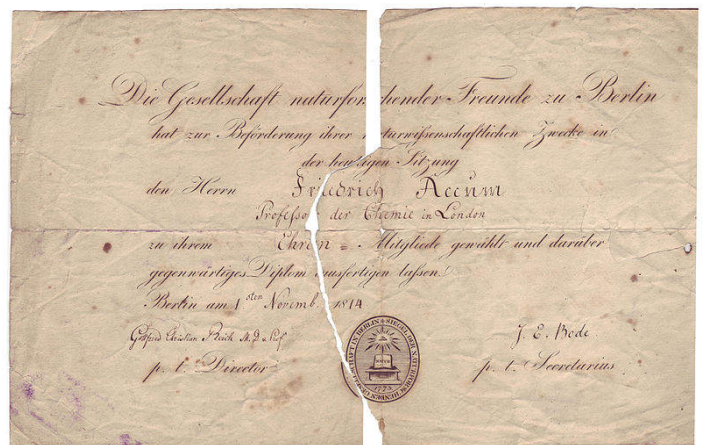 Die Gesellschaft naturforschender Freunde zu Berlin
hat zur Beförderung ihrer naturwißenschaftlichen Zwecke in
der heutigen Sitzung
den Herrn Friedrich Accum
Professor der Chemie in London
zu ihrem Ehren = Mitgliede gewählt und darüber
gegenwärtiges Diplom ausfertigen lassen.
Berlin am 1sten Novemb. 1814
Christian Reich M. D.
J. E. Bode
p. t. Director
p. t. Secretarius
SIEGEL DER NATURFORSCHENDEN GESELLSCHAFT IN BERLIN
1773